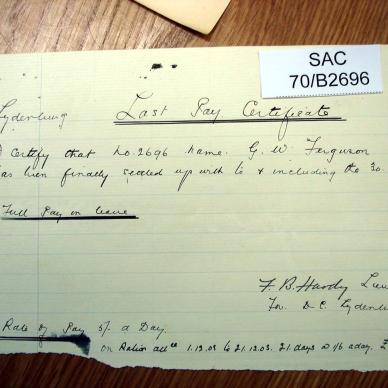 SAC
70/B2696
Lydenburg
Last Pay Certificate
I Certify that No. 2696 name. G. W. Ferguson
has been finally settled up with to & including the 30.
Full Pay on leave
F. B. Hardy Lieu
For D C. Lydenbu
Rate of Pay 5/. a Day.
on Ration all^ce 1.12.03 to 21.12.03. 21 days @ 1/6 a day. £